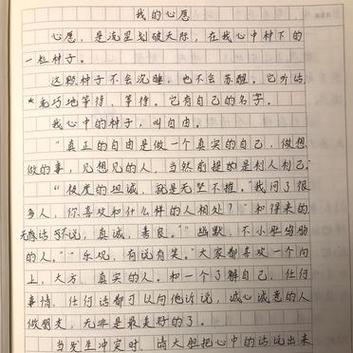 我的心愿
心愿，是流星划破天际，在我心中种下的
一粒种子。
这颗种子不会沉睡，也不会苏醒。它永远
乖巧地等待，等待。它有自己的名字。
我心中的种子，叫自由。
“真正的自由是做一个真实的自己，做想
做的事，见想见的人，当然前提的是利人利己。”
“极度的坦诚，就是无坚不摧。”我问了很
多人，你喜欢和什么样的人相处？“和得来的
无话不说，真诚，善良。”“幽默，不小肚鸡肠
的人。”“乐观，有说有笑。”大家都喜欢一个向
上，大方，真实的人。和一个了解自己，任何
事情，任何话都可以向他诉说，诚心诚意的人
做朋友，无非是最美好的了。
当发生冲突时，请大胆把心中的话说出来